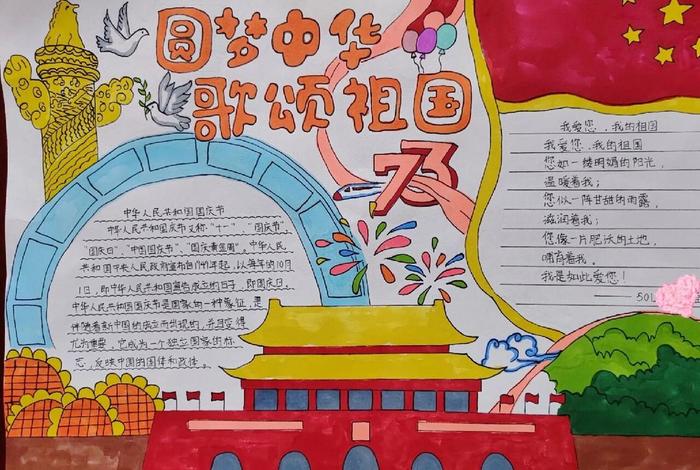 圆梦中华
歌颂祖国
73
中华人民共和国国庆节
中华人民共和国国庆节又称“十一”、“国庆节”
“国庆日”、“中国国庆节”、“国庆黄金周”。中华人民
共和国中央人民政府宣布自1949年起，以每年的10月
1日，即中华人民共和国宣告成立的日子，即国庆日。
中华人民共和国国庆节是国家的一种象征，是
伴随着新中国的成立而出现的，并且变得
尤为重要，它成为一个独立国家的标
志，反映中国的国体和政体。
我爱您，我的祖国
我爱您，我的祖国
您如一缕明媚的阳光，
温暖着我；
您似一阵甘甜的雨露，
滋润着我；
您像一片肥沃的土地，
哺育着我。
我是如此爱您！
——501